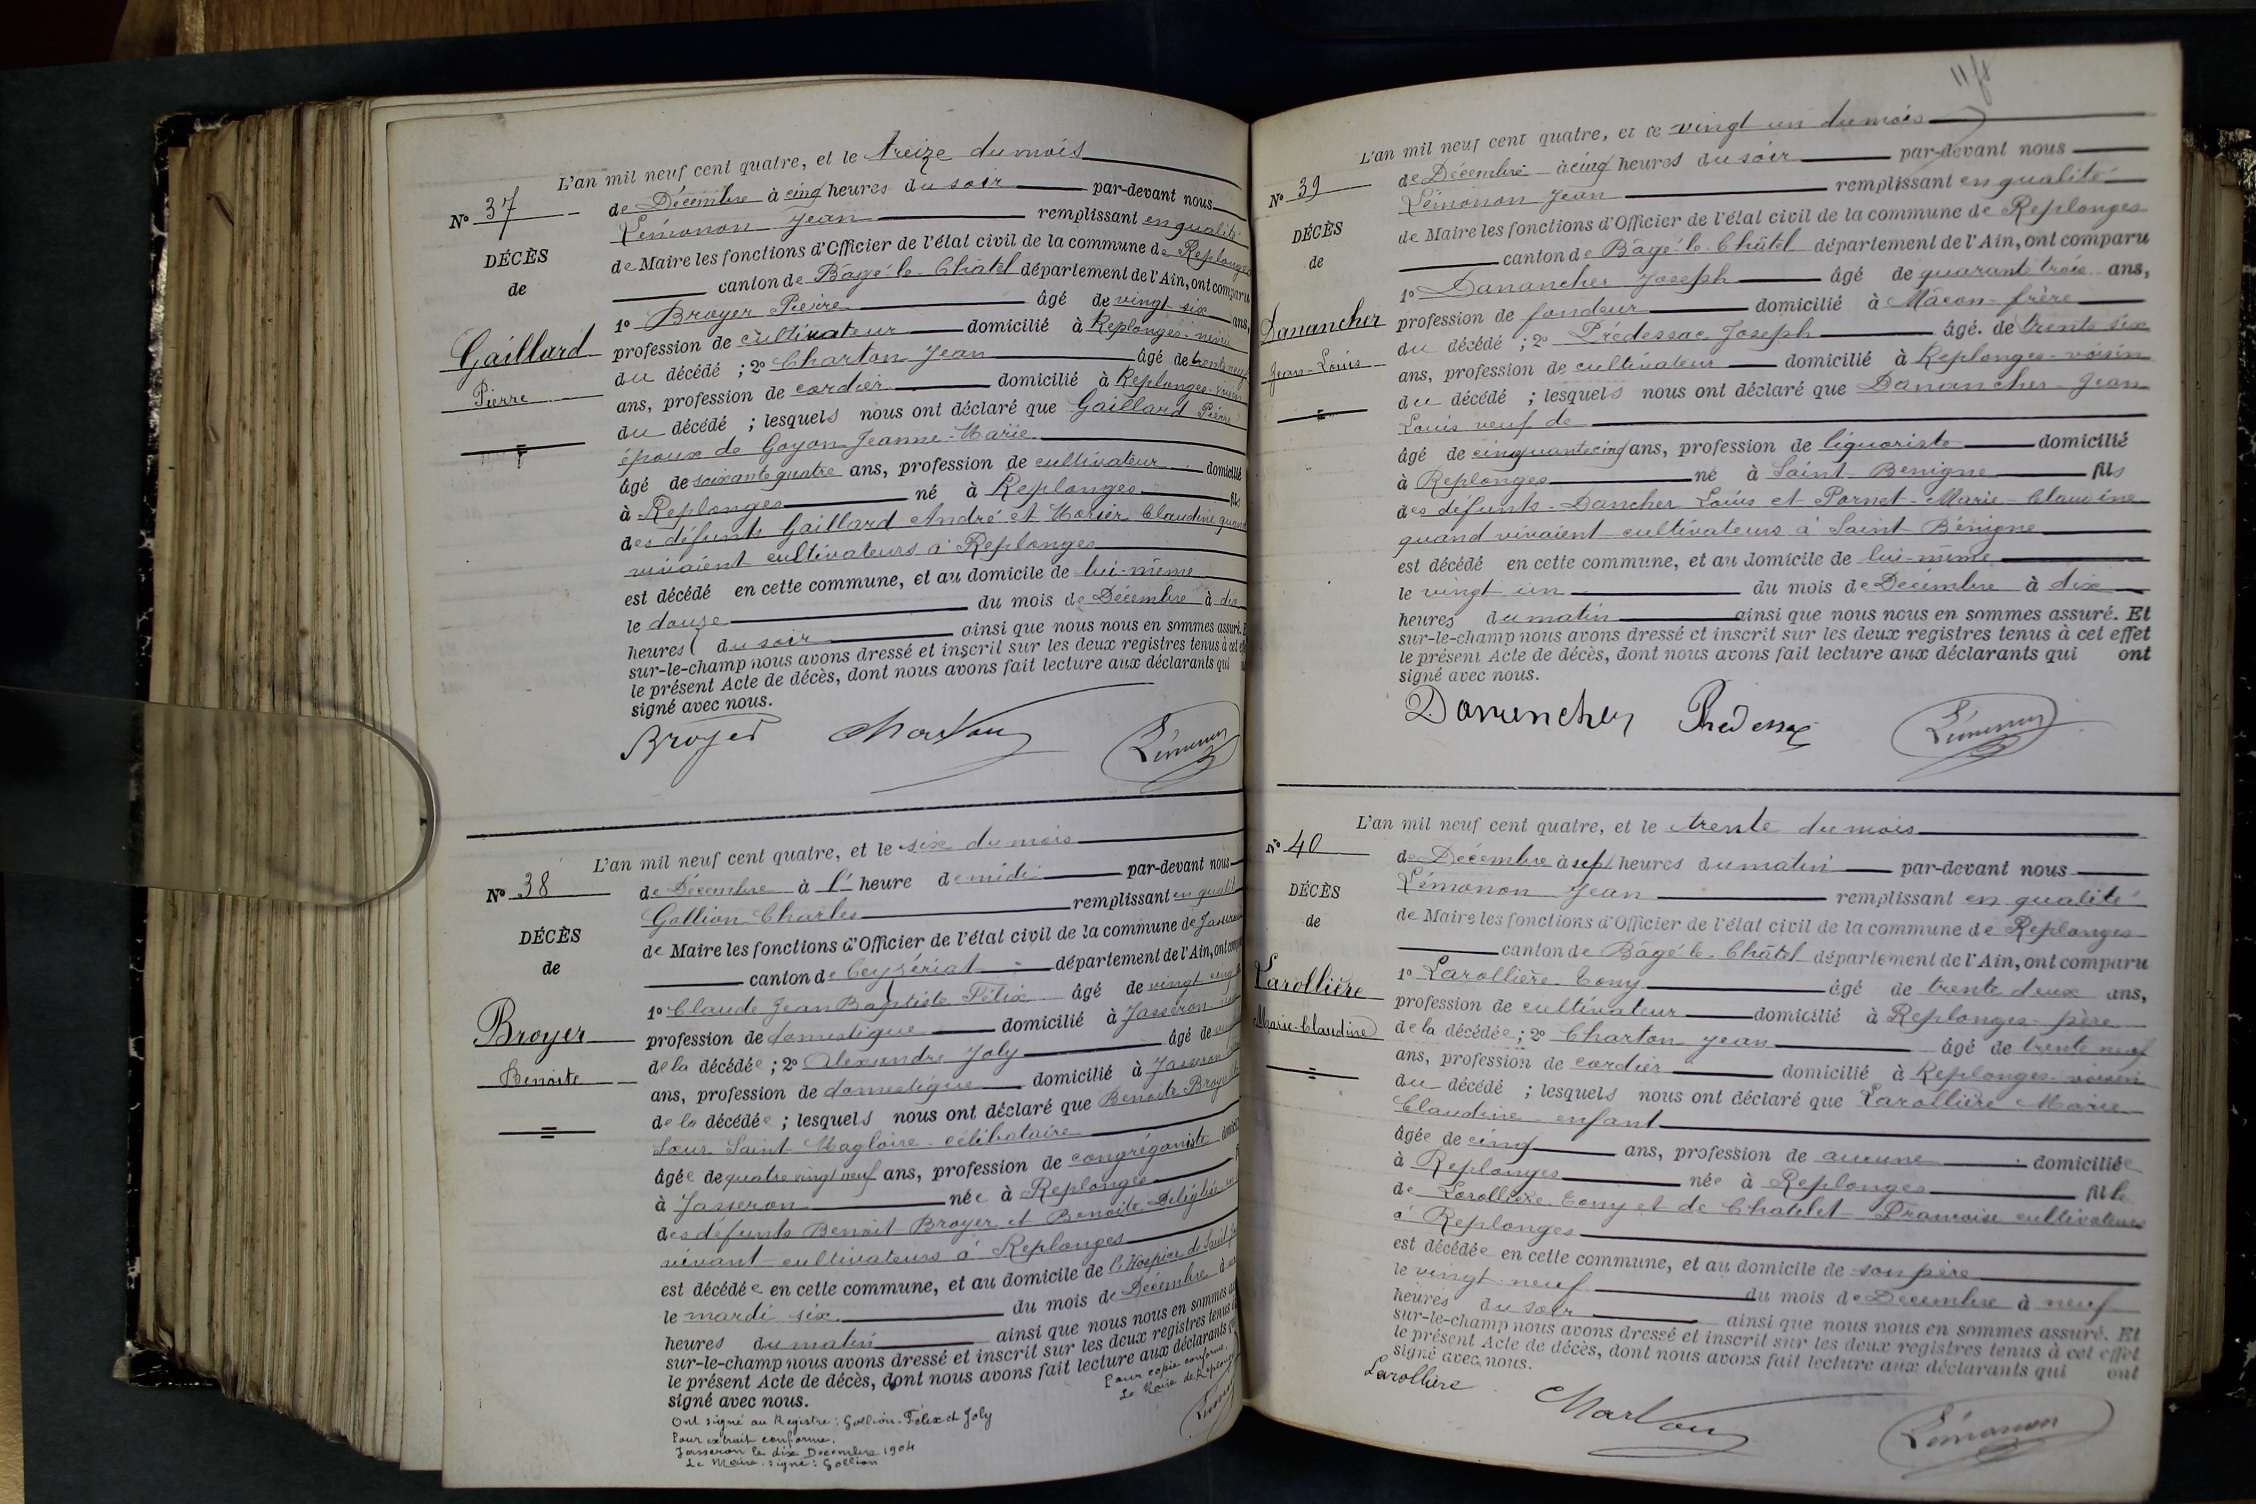 L'an mil neuf cent quatre, et le treize du mois
N° 37
de Décembre à cinq heures du soir par-devant nous
Lémonon Jean remplissant en qualité
DÉCÈS
de Maire les fonctions d'Officier de l'état civil de la commune de Replonges
de
canton de Bâgé-le-Châtel département de l'Ain, ont comparu
1° Broyer Pierre âgé de vingt six ans,
Gaillard
profession de cultivateur domicilié à Replonges
du décédé ; 2° Charton Jean âgé de trente neuf
Pierre
ans, profession de cordier domicilié à Replonges voisin
du décédé ; lesquels nous ont déclaré que Gaillard Pierre
époux de Goyon Jeanne-Marie
âgé de soixante quatre ans, profession de cultivateur domicilié
à Replonges né à Replonges fils
des défunts Gaillard André et Morier Claudine quand
vivaient cultivateurs à Replonges
est décédé en cette commune, et au domicile de lui-même
le douze du mois de Décembre à dix
heures du soir ainsi que nous nous en sommes assuré. Et
sur-le-champ nous avons dressé et inscrit sur les deux registres tenus à cet
le présent Acte de décès, dont nous avons fait lecture aux déclarants qui
signé avec nous.
Broyer Charton Lémonon
L'an mil neuf cent quatre, et le six du mois
N° 38
de Décembre à l' heure de midi par-devant nous
Gollion Charles remplissant en qualité
DÉCÈS
de Maire les fonctions d'Officier de l'état civil de la commune de Jasseron
de
canton de Ceyzériat département de l'Ain, ont comparu
1° Claude Jean Baptiste Félix âgé de vingt cinq
Broyer
profession de domestique domicilié à Jasseron
de la décédée ; 2° Alexandre Joly âgé de
Benoite
ans, profession de domestique domicilié à Jasseron
de la décédée ; lesquels nous ont déclaré que Benoite Broyer
Sœur Saint Magloire célibataire
âgée de quatre vingt neuf ans, profession de congréganiste
à Jasseron née à Replonges
des défunts Benoit Broyer et Benoite
vivant cultivateurs à Replonges
est décédée en cette commune, et au domicile de l'Hospice de Saint
le mardi six du mois de Décembre à
heures du matin ainsi que nous nous en sommes
sur-le-champ nous avons dressé et inscrit sur les deux registres tenus à
le présent Acte de décès, dont nous avons fait lecture aux déclarants qui
signé avec nous.
Pour copie conforme.
Le Maire de Replonges
Lémonon
Ont signé au Registre : Gollion, Félix et Joly
Pour extrait conforme.
Jasseron le dix Décembre 1904
Le Maire. signé : Gollion
118
L'an mil neuf cent quatre, et ce vingt un du mois
N° 39
de Décembre à cinq heures du soir par-devant nous
Lémonon Jean remplissant en qualité
DÉCÈS
de Maire les fonctions d'Officier de l'état civil de la commune de Replonges
de
canton de Bâgé-le-Châtel département de l'Ain, ont comparu
1° Danancher Joseph âgé de quarante trois ans,
Danancher
profession de fondeur domicilié à Mâcon frère
du décédé ; 2° Prédessac Joseph âgé de trente six
Jean-Louis
ans, profession de cultivateur domicilié à Replonges voisin
du décédé ; lesquels nous ont déclaré que Danancher Jean
Louis veuf de
âgé de cinquante cinq ans, profession de liquoriste domicilié
à Replonges né à Saint-Benigne fils
des défunts Dancher Louis et Pornet Marie-Claudine
quand vivaient cultivateurs à Saint-Bénigne
est décédé en cette commune, et au domicile de lui-même
le vingt un du mois de Décembre à dix
heures du matin ainsi que nous nous en sommes assuré. Et
sur-le-champ nous avons dressé et inscrit sur les deux registres tenus à cet effet
le présent Acte de décès, dont nous avons fait lecture aux déclarants qui ont
signé avec nous.
Danancher Lémonon
L'an mil neuf cent quatre, et le trente du mois
N° 40
de Décembre à sept heures du matin par-devant nous
Lémonon Jean remplissant en qualité
DÉCÈS
de Maire les fonctions d'Officier de l'état civil de la commune de Replonges
de
canton de Bâgé-le-Châtel département de l'Ain, ont comparu
1° Larollière Tony âgé de trente deux ans,
Larollière
profession de cultivateur domicilié à Replonges père
Marie-Claudine
de la décédée ; 2° Charton Jean âgé de trente neuf
ans, profession de cordier domicilié à Replonges voisin
du décédé ; lesquels nous ont déclaré que Larollière Marie
Claudine enfant
âgée de cinq ans, profession de aucune domiciliée
à Replonges née à Replonges fille
de Larollière Tony et de Chatelet Françoise cultivateurs
à Replonges
est décédée en cette commune, et au domicile de son père
le vingt neuf du mois de Décembre à neuf
heures du soir ainsi que nous nous en sommes assuré. Et
sur-le-champ nous avons dressé et inscrit sur les deux registres tenus à cet effet
le présent Acte de décès, dont nous avons fait lecture aux déclarants qui ont
signé avec nous.
Larollière Charton Lémonon